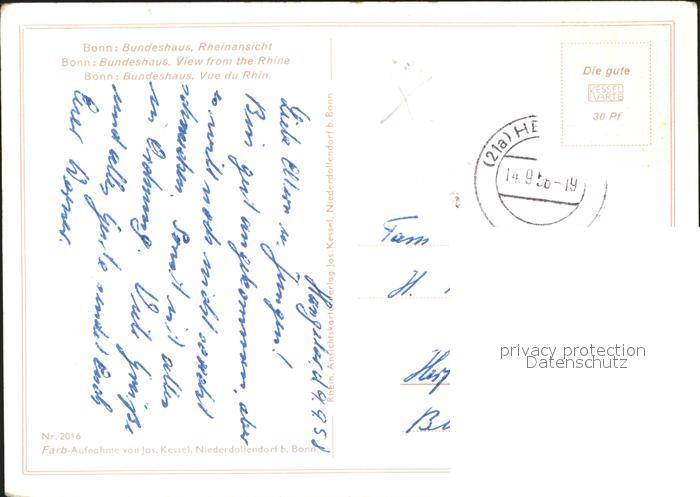 Bonn: Bundeshaus, Rheinansicht
Bonn: Bundeshaus, View from the Rhine
Bonn: Bundeshaus, Vue du Rhin
Liebe Eltern u. Jungen!
Bin gut angekommen, aber
es will noch nicht so recht
schmecken. Sonst ist alles
in Ordnung. Viele Grüße
und alles Gute sendet Euch
Euer Werner.
Nr. 2016
Farb-Aufnahme von Jos. Kessel, Niederdollendorf b. Bonn
Rhein. Ansichtskartenverlag Jos. Kessel, Niederdollendorf b. Bonn
Die gute
KESSEL
KARTE
30 Pf
(21a) HE
14.9.56-19
Fam
H.
privacy protection
Datenschutz